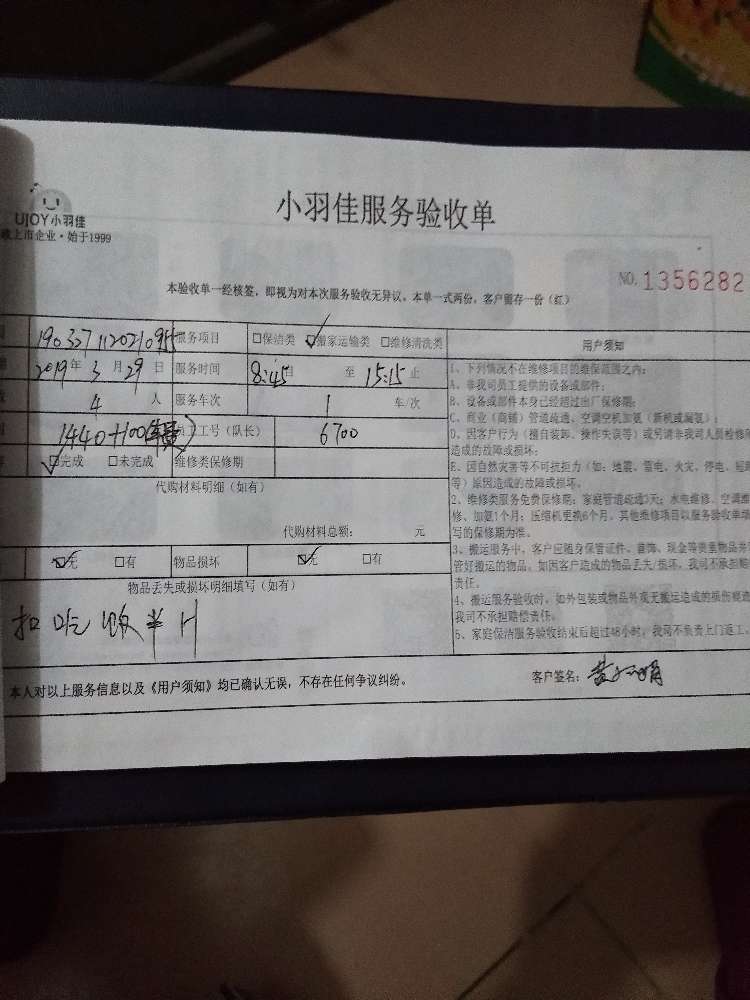 UJOY小羽佳
上市企业·始于1999
小羽佳服务验收单
NO. 1356282
本验收单一经核签，即视为对本次服务验收无异议。本单一式两份，客户留存一份（红）
服务项目 □保洁类 ☑搬家运输类 □维修清洗类
2019年 3月 29日 服务时间 8:45 至 15:15 止
4 人 服务车次 1 车/次
1440+100 员工工号（队长） 6700
☑完成 □未完成 维修类保修期
代购材料明细（如有）
代购材料总额： 元
☑无 □有 物品损坏 ☑无 □有
物品丢失或损坏明细填写（如有）
扣吃饭半H
用户须知
1、下列情况不在维修项目的维保范围之内：
A、非我司员工提供的设备或部件；
B、设备或部件本身已经超过出厂保修期；
C、商业（商铺）管道疏通、空调空机加氨（新机或漏氨）；
D、因客户行为（擅自装卸、操作失误等）或另请非我司人员检修所
造成的故障或损坏；
E、因自然灾害等不可抗拒力（如：地震、雷电、火灾、停电、短路
等）原因造成的故障或损坏。
2、维修类服务免费保修期：家庭管道疏通3天；水电维修、空调维
修、加氨1个月；压缩机更换6个月。其他维修项目以服务验收单填
写的保修期为准。
3、搬运服务中，客户应随身保管证件、首饰、现金等贵重物品并
管好搬运的物品，如因客户造成的物品丢失/损坏，我司不承担赔
责任。
4、搬运服务验收时，如外包装或物品外观无搬运造成的损伤痕迹
我司不承担赔偿责任。
5、家庭保洁服务验收结束后超过48小时，我司不负责上门返工。
本人对以上服务信息以及《用户须知》均已确认无误，不存在任何争议纠纷。
客户签名：